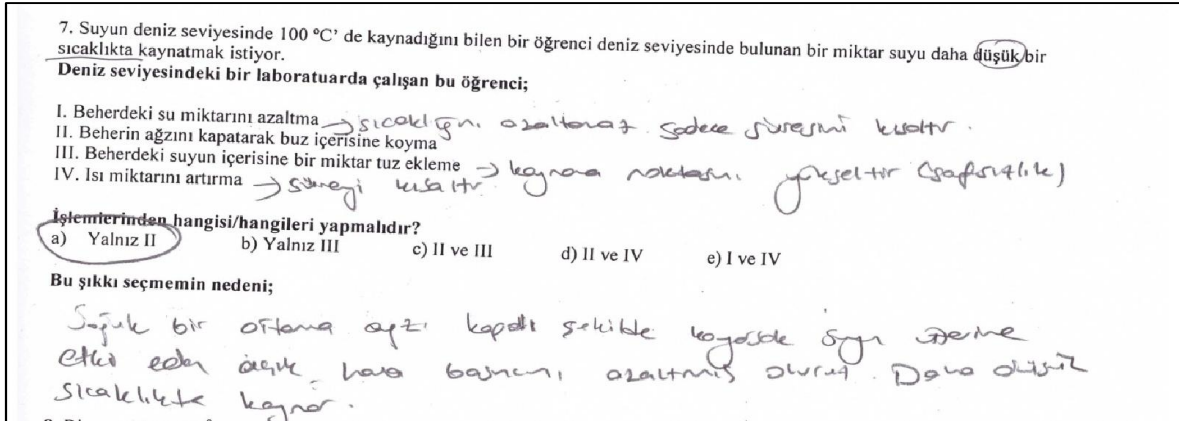 7. Suyun deniz seviyesinde 100 ºC' de kaynadığını bilen bir öğrenci deniz seviyesinde bulunan bir miktar suyu daha düşük bir
sıcaklıkta kaynatmak istiyor.
Deniz seviyesindeki bir laboratuarda çalışan bu öğrenci;
I. Beherdeki su miktarını azaltma → sıcaklığını azaltmaz sadece süresini kısaltır.
II. Beherin ağzını kapatarak buz içerisine koyma
III. Beherdeki suyun içerisine bir miktar tuz ekleme → kaynama noktasını yükseltir (safsızlık)
IV. Isı miktarını artırma → süreyi kısaltır
İşlemlerinden hangisi/hangileri yapmalıdır?
a) Yalnız II b) Yalnız III c) II ve III d) II ve IV e) I ve IV
Bu şıkkı seçmemin nedeni;
Soğuk bir ortama ağzı kapalı şekilde koyarsak suyun üzerine
etki eden açık hava basıncını azaltmış oluruz. Daha düşük
sıcaklıkta kaynar.